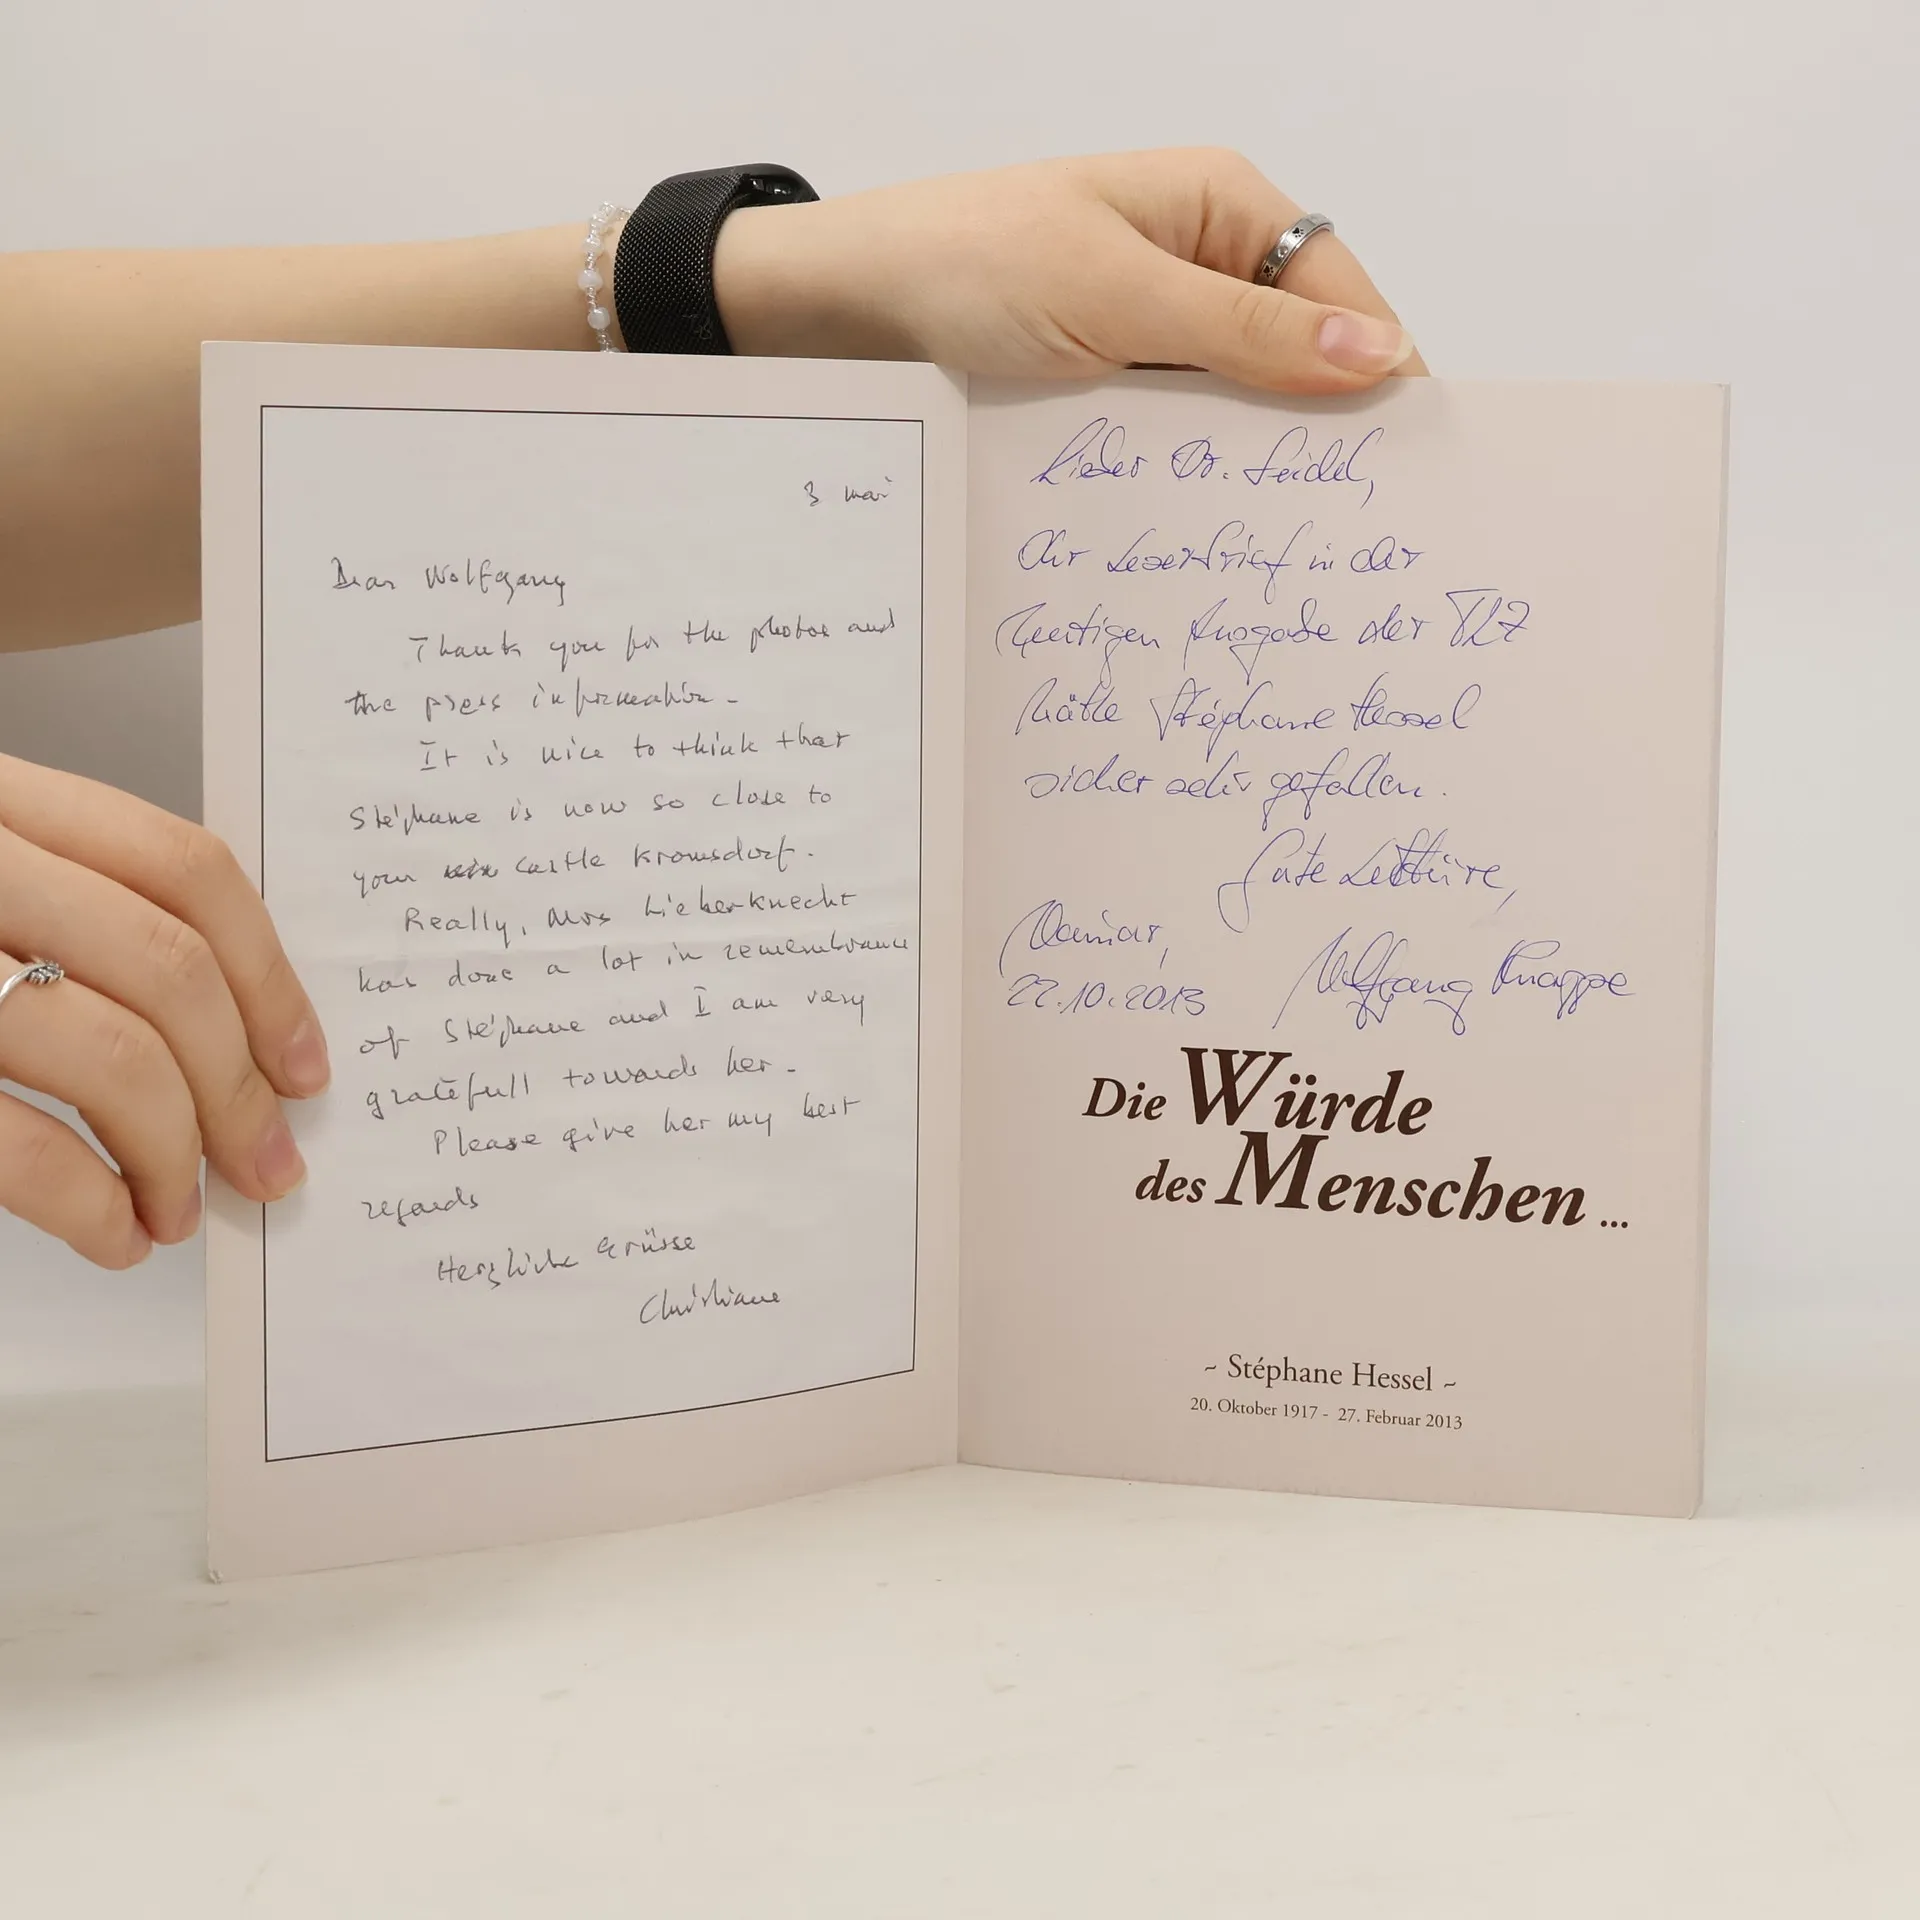 3 mai
Dear Wolfgang
Thank you for the photos and
the press information -
It is nice to think that
Stéphane is now so close to
your castle Kromsdorf.
Really, Mrs Lieberknecht
has done a lot in remembrance
of Stéphane and I am very
gratefull towards her -
Please give her my best
regards
Herzliche Grüsse
Christiane
Lieber Dr. Seidel,
Ihr Leserbrief in der
heutigen Ausgabe der TLZ
hätte Stéphane Hessel
sicher sehr gefallen.
Gute Lektüre,
Weimar,
22.10.2013 Wolfgang Knappe
Die Würde
des Menschen ...
~ Stéphane Hessel ~
20. Oktober 1917 - 27. Februar 2013